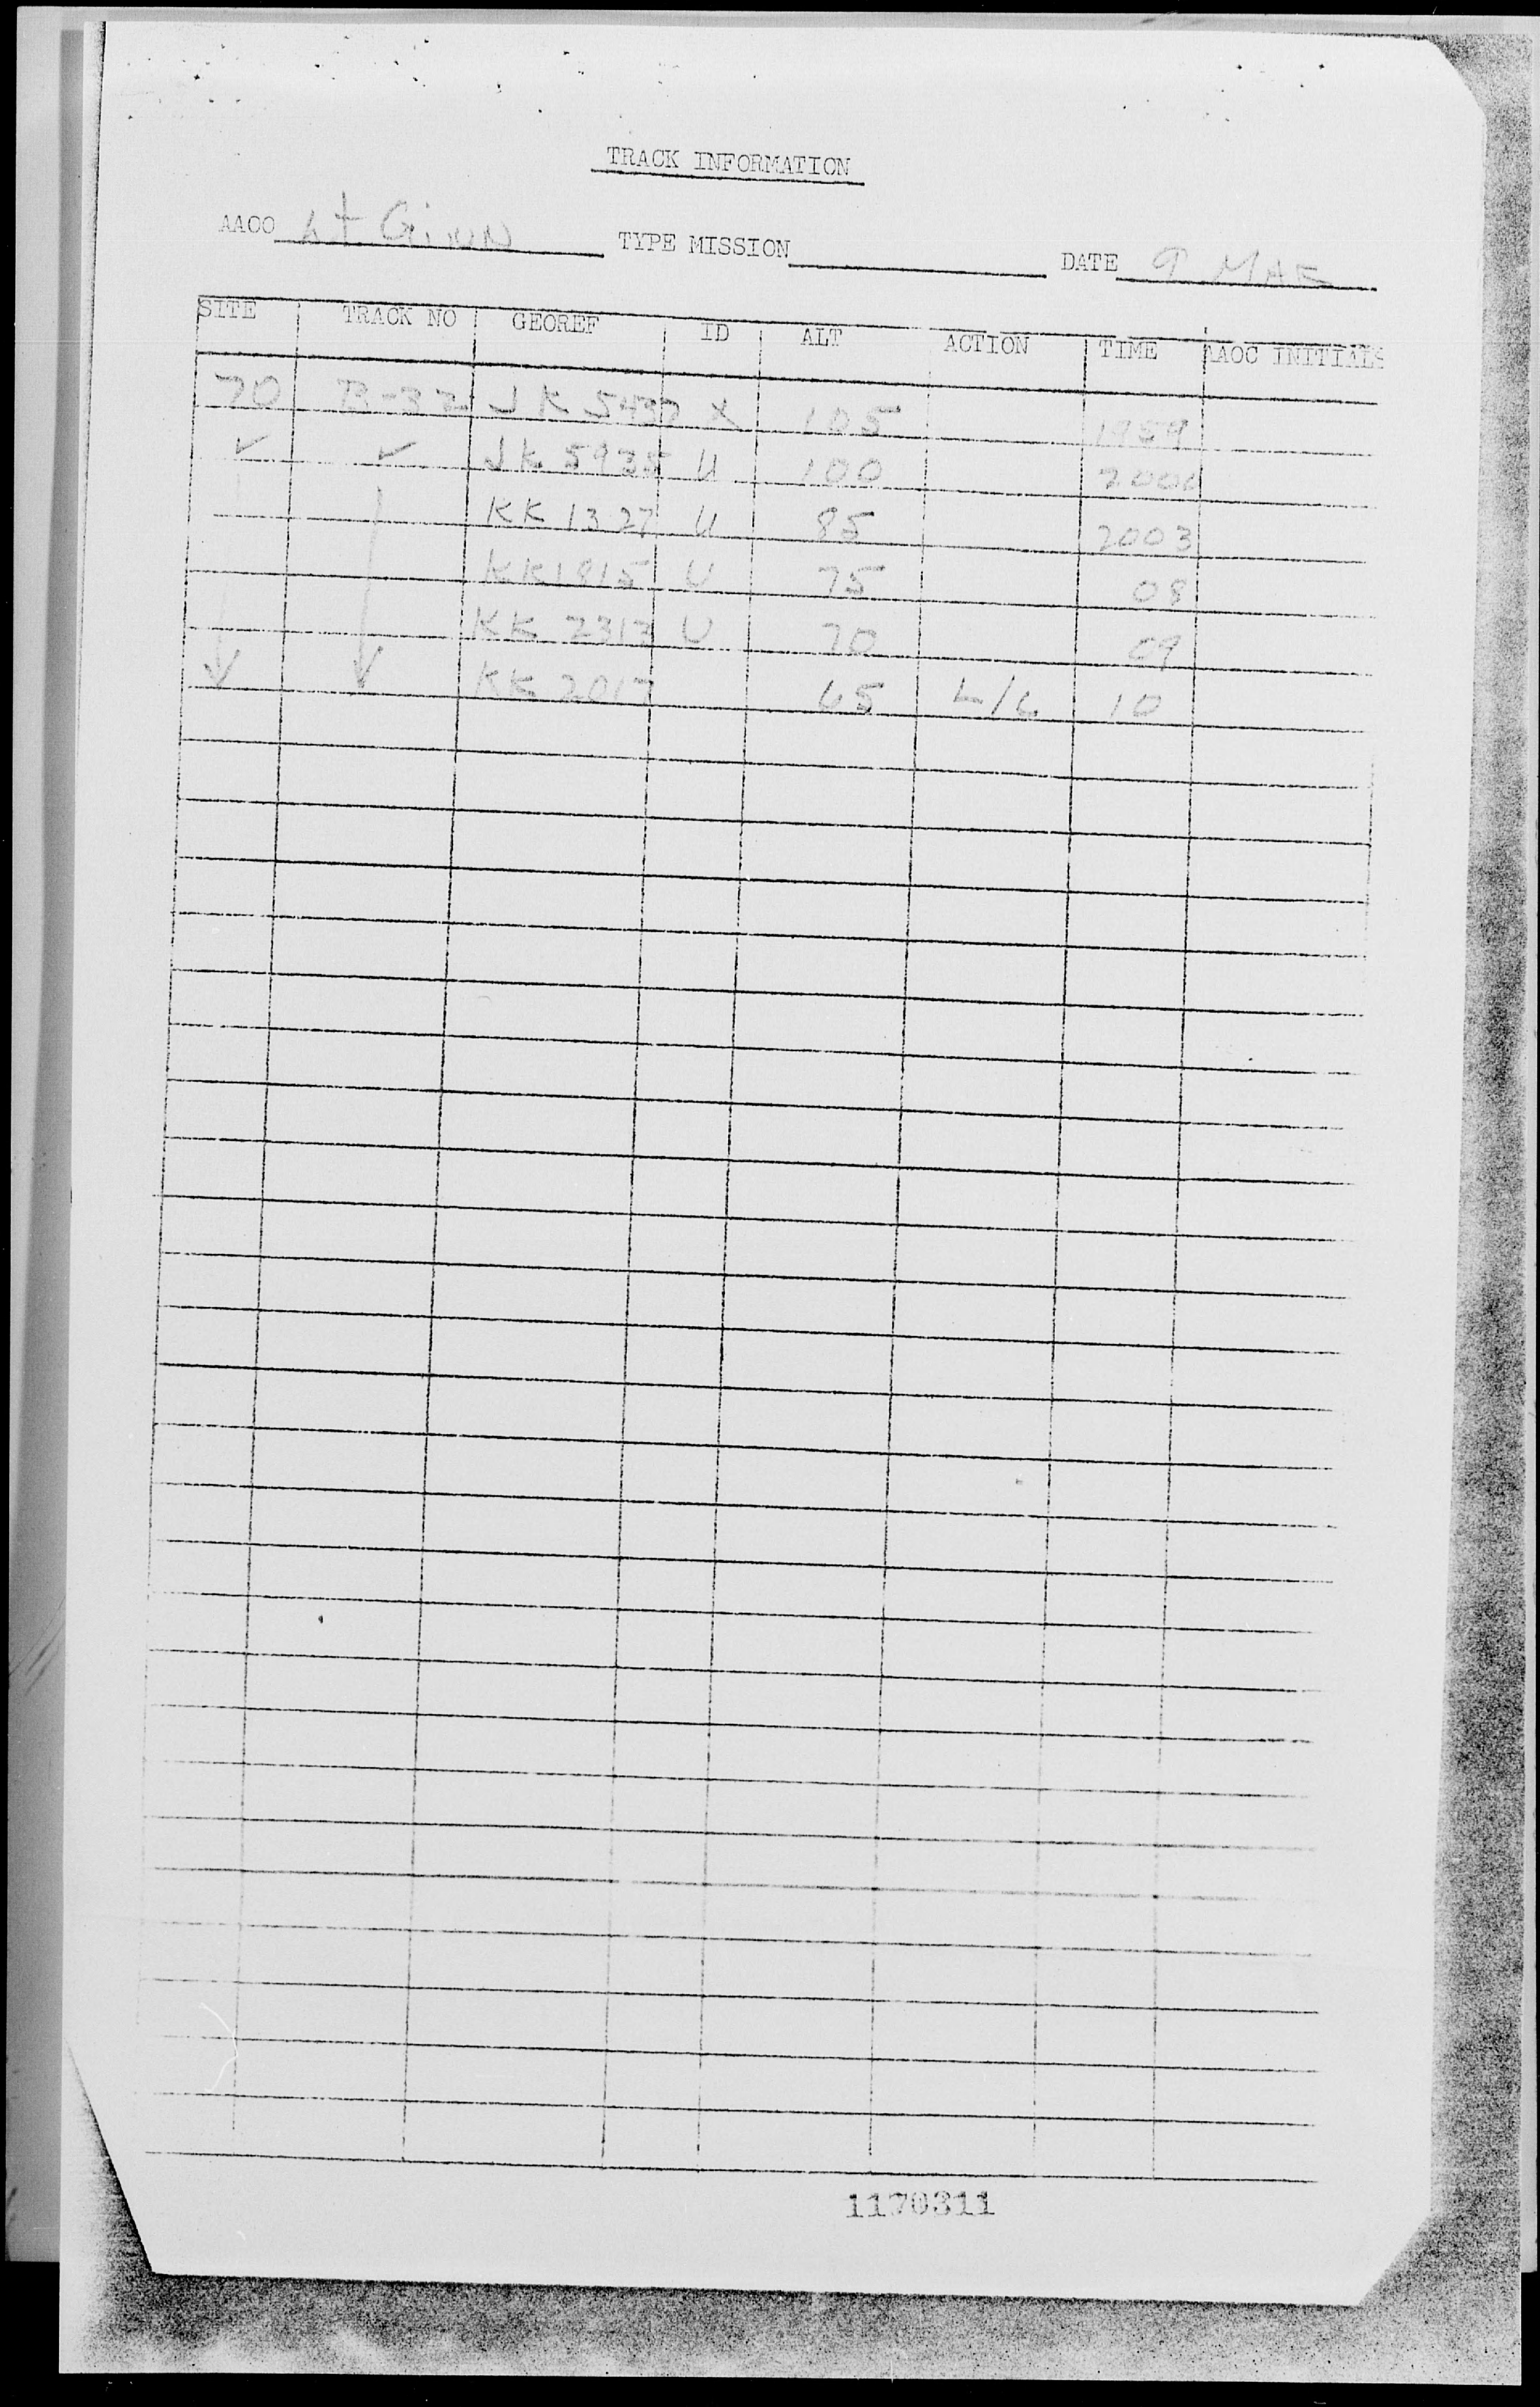 TRACK INFORMATION
AAOO Lt Ginn TYPE MISSION DATE 9 MAR
SITE TRACK NO GEOREF ID ALT ACTION TIME AAOC INITIALS
70 B-32 JK 5437 X 105 1959
✓ ✓ JK 5935 U 100 2000
KK 1327 U 85 2003
KK 1815 U 75 08
KK 2313 U 70 09
KK 2017 65 L/C 10
1170311